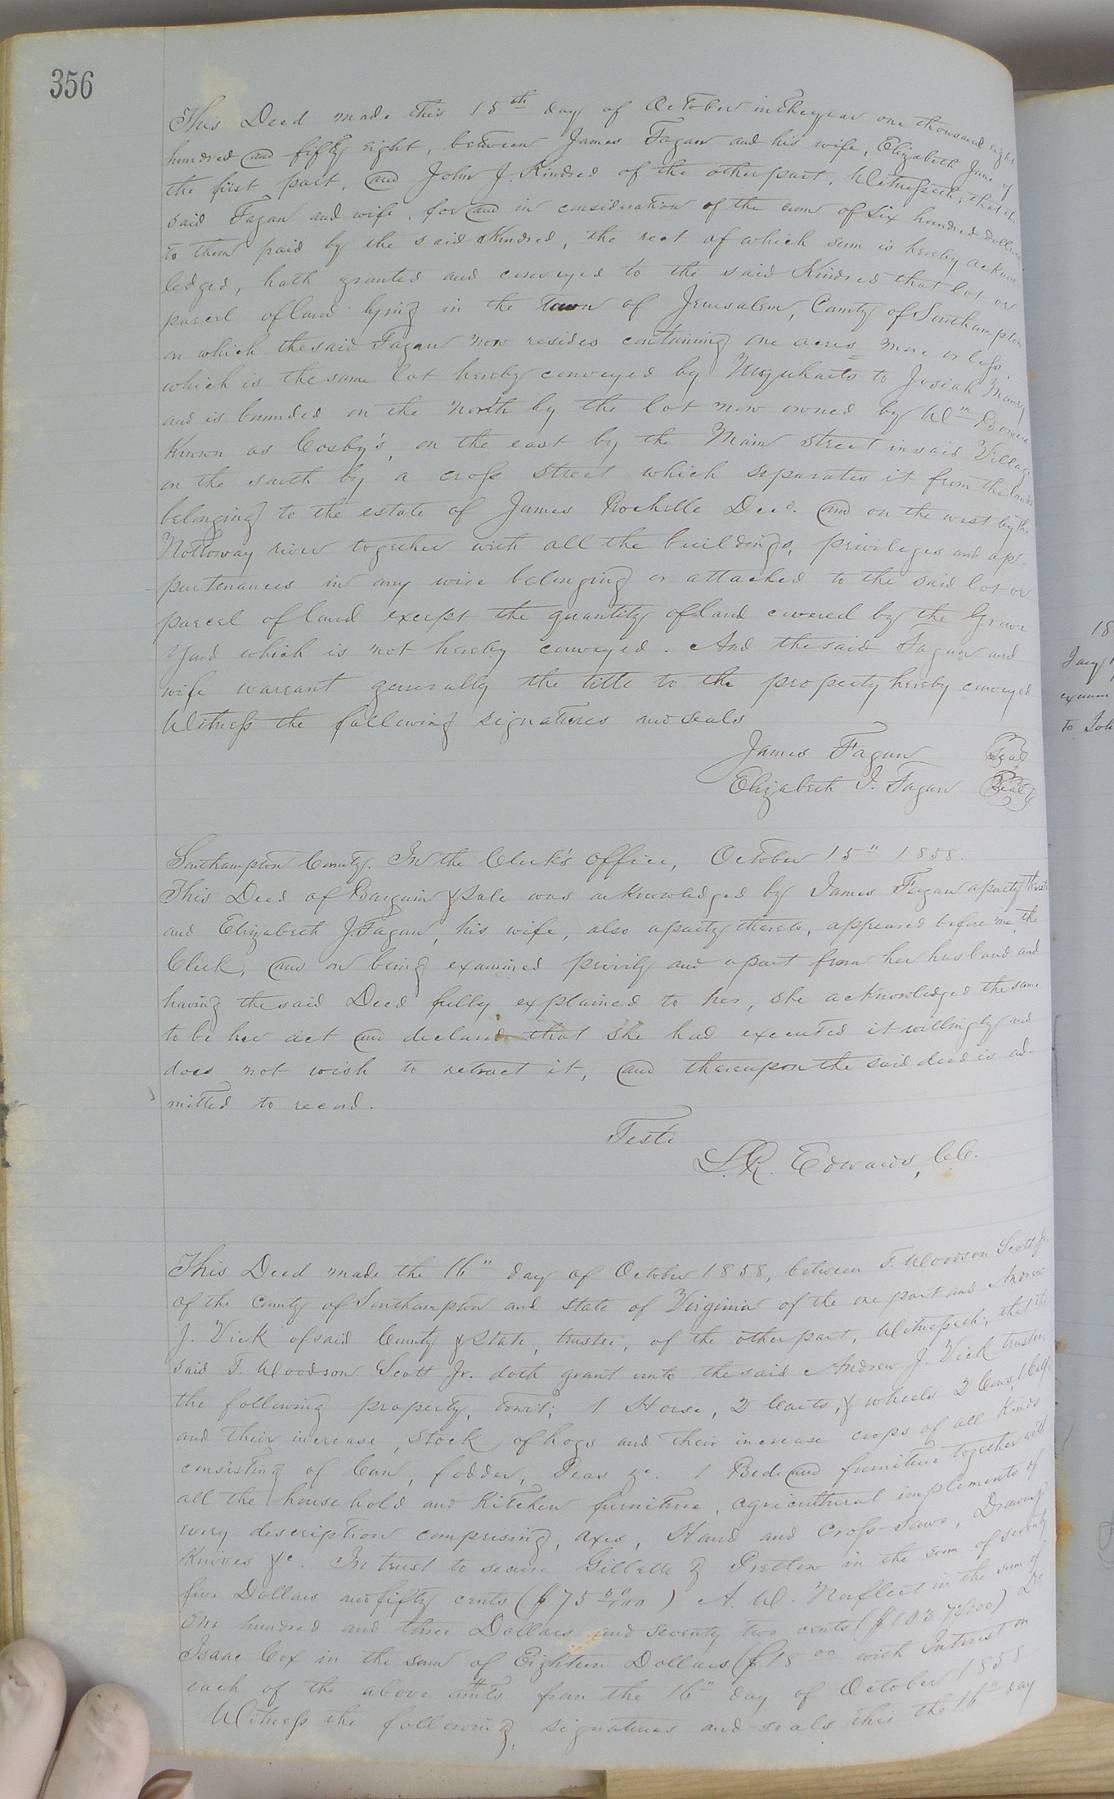 356
This Deed made this 15th day of October in the year one thousand eight
hundred and fifty eight, between James Fagan and his wife, Elizabeth Jane of
the first part, and John J. Kindred of the other part, Witnesseth; that the
said Fagan and wife, for and in consideration of the sum of Six hundred dollars
to them paid by the said Kindred, the rect of which sum is hereby acknow
ledged, hath granted and conveyed to the said Kindred that lot or
parcel of land lying in the town of Jerusalem, County of Southampton
on which the said Fagan now resides containing one acres more or less,
which is the same lot hereby conveyed by to Josiah
and is bounded on the North by the lot now owned by Wm
Known as Cosby's, on the east by the Main street in said Village
on the south by a cross street which separates it from the
belonging to the estate of James Rochelle Decd. and on the west by the
Nottoway river together with all the buildings, privileges and ap-
purtenances in any wise belonging or attached to the said lot or
parcel of land except the quantity of land covered by the Grave
Yard which is not hereby conveyed. And the said Fagan and
wife warrant generally the title to the property hereby conveyed
Witness the following signatures and seals
James Fagan Seal
Elizabeth J. Fagan Seal
Southampton County. In the Clerk's office, October 15" 1858.
This Deed of Bargain & Sale was acknowledged by James Fagan a party thereto
and Elizabeth J. Fagan, his wife, also a party thereto, appeared before me, the
Clerk, and on being examined privily and apart from her husband and
having the said Deed fully explained to her, she acknowledged the same
to be her act and declared that she had executed it willingly and
does not wish to retract it, and thereupon the said deed is ad-
mitted to record.
Teste
L. R. Edwards, C.C.
This Deed made the 16" day of October 1858, between T. Woodson Scott Jr.
of the County of Southampton and State of Virginia of the one part and Andrew
J. Vick of said County & State, trustee, of the other part, Witnesseth; that the
said T. Woodson Scott Jr. doth grant unto the said Andrew J. Vick trustee,
the following property, towit; 1 Horse, 2 Carts, & wheels 2 Cows, 1 Calf
and their increase, stock of hogs and their increase crops of all Kinds
consisting of Corn, fodder, Peas &c. 1 Bed and furniture together with
all the household and Kitchen furniture, agricultural implements of
every description comprising, axes, Hand and Cross-Saws, Drawing
Knives &c. In trust to secure Gillette & Pretlow in the sum of seventy
five Dollars and fifty cents ($75 50/100) A. W. Norfleet in the sum of
One hundred and three Dollars and seventy two cents ($103 72/100)
Isaac Cox in the sum of Eighteen Dollars ($18 00 with Interest on
each of the above amts from the 16" day of October 1858
Witness the following signatures and seals this the 16" day
18
exam
to Joh